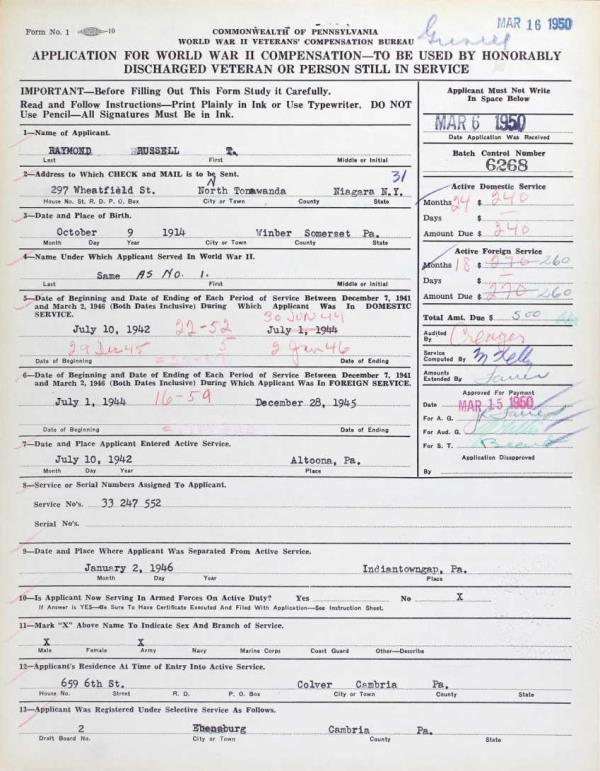 MAR 16 1950
Form No. 1 10
COMMONWEALTH OF PENNSYLVANIA
WORLD WAR II VETERANS' COMPENSATION BUREAU
APPLICATION FOR WORLD WAR II COMPENSATION—TO BE USED BY HONORABLY
DISCHARGED VETERAN OR PERSON STILL IN SERVICE
IMPORTANT—Before Filling Out This Form Study it Carefully.
Read and Follow Instructions—Print Plainly in Ink or Use Typewriter. DO NOT
Use Pencil—All Signatures Must Be in Ink.
Applicant Must Not Write
In Space Below
MAR 6 1950
Date Application Was Received
Batch Control Number
6268
Active Domestic Service
Months 24 $ 240
Days $ —
Amount Due $ 240
Active Foreign Service
Months 18 $ 270 260
Days $ —
Amount Due $ 270 260
Total Amt. Due $ 500
Audited
By
Service
Computed By M Kelly
Amounts
Extended By
Approved For Payment
Date MAR 15 1950
For A. G.
For Aud. G.
For S. T.
Application Disapproved
By
1—Name of Applicant.
RAYMOND RUSSELL T.
Last First Middle or Initial
2—Address to Which CHECK and MAIL is to be Sent. 31
297 Wheatfield St. North Tonawanda Niagara N.Y.
House No. St. R. D. P. O. Box City or Town County State
3—Date and Place of Birth.
October 9 1914 Winber Somerset Pa.
Month Day Year City or Town County State
4—Name Under Which Applicant Served In World War II.
Same AS No. 1.
Last First Middle or Initial
5—Date of Beginning and Date of Ending of Each Period of Service Between December 7, 1941
and March 2, 1946 (Both Dates Inclusive) During Which Applicant Was In DOMESTIC
SERVICE. 30 JUN 44
July 10, 1942 22-52 July 1, 1944
29 Dec 45 5 2 Jan 46
Date of Beginning Date of Ending
6—Date of Beginning and Date of Ending of Each Period of Service Between December 7, 1941
and March 2, 1946 (Both Dates Inclusive) During Which Applicant Was In FOREIGN SERVICE.
July 1, 1944 16-59 December 28, 1945
Date of Beginning Date of Ending
7—Date and Place Applicant Entered Active Service.
July 10, 1942 Altoona, Pa.
Month Day Year Place
8—Service or Serial Numbers Assigned To Applicant.
Service No's. 33 247 552
Serial No's.
9—Date and Place Where Applicant Was Separated From Active Service.
January 2, 1946 Indiantowngap, Pa.
Month Day Year Place
10—Is Applicant Now Serving In Armed Forces On Active Duty? Yes No X
If Answer is YES—Be Sure To Have Certificate Executed And Filed With Application—See Instruction Sheet.
11—Mark "X" Above Name To Indicate Sex and Branch of Service.
X X
Male Female Army Navy Marine Corps Coast Guard Other—Describe
12—Applicant's Residence At Time of Entry Into Active Service.
659 6th St. Colver Cambria Pa.
House No. Street R. D. P. O. Box City or Town County State
13—Applicant Was Registered Under Selective Service As Follows.
2 Ebensburg Cambria Pa.
Draft Board No. City or Town County State